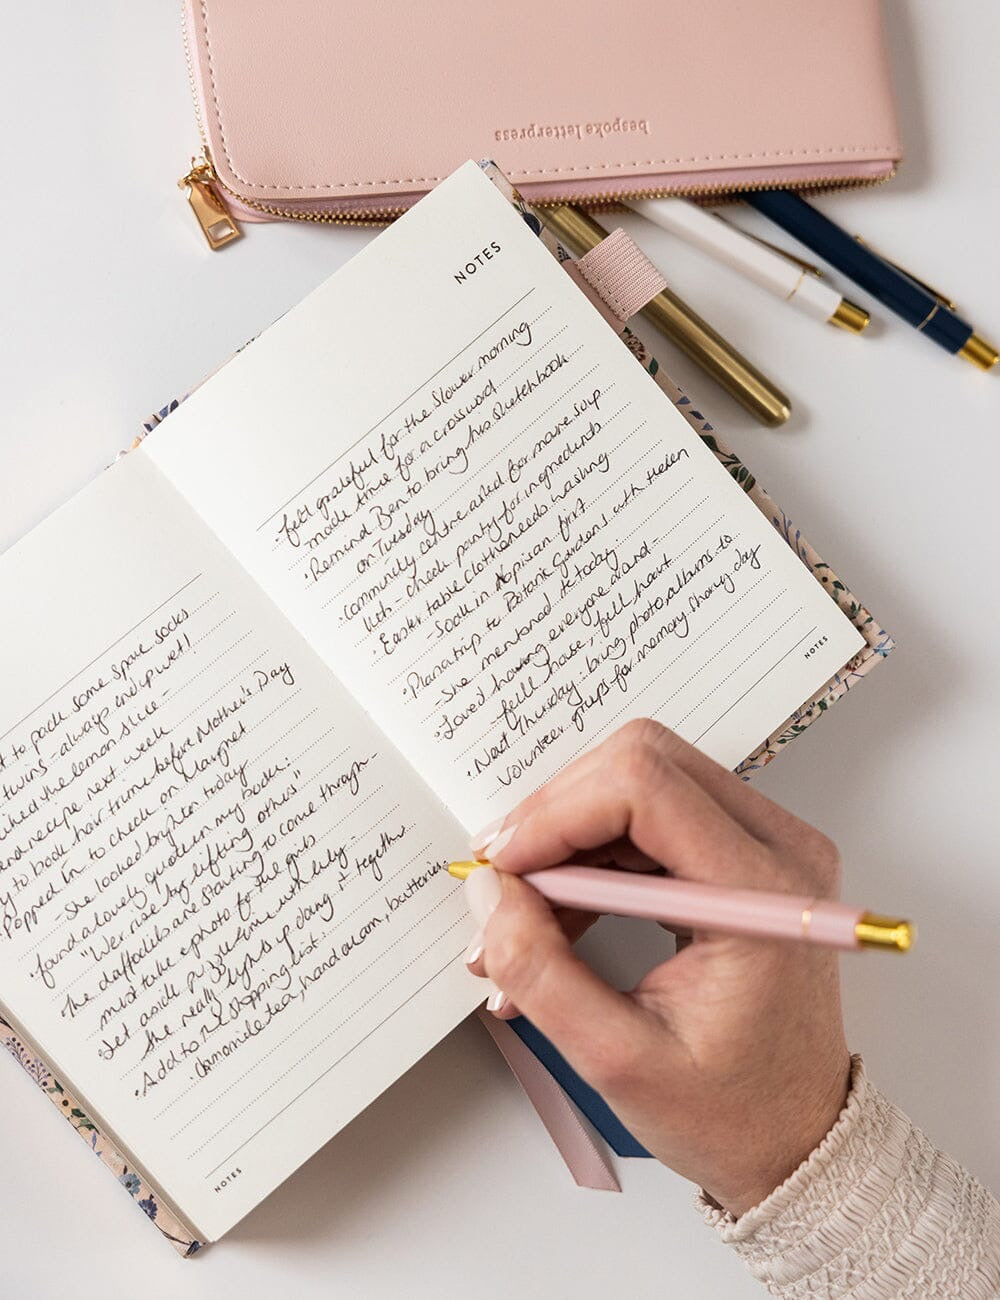 bespoke letterpress
to pack some spare socks
twins - always end up wet!
liked the lemon slice -
send recipe next week
to book hair trim before Mother's Day
Popped in to check on Margret
- She looked brighter today
found a lovely quote in my book:
"We rise by lifting others"
The daffodils are starting to come through -
must take a photo for the girls
Set aside puzzle time with Lily -
She really lights up doing it together
Add to the shopping list:
Camomile tea, hand cream, batteries
NOTES
NOTES
felt grateful for the slower morning
made time for a crossword
Remind Ben to bring his sketchbook
on Tuesday
Community centre asked for more soup
- check pantry for ingredients
Easter table cloth needs washing
- Soak in Napisan first
Plan a trip to Botanic Gardens with Helen
- She mentioned it today
Loved having everyone around -
- full house, full heart
Next Thursday: bring photo albums to
volunteer group for memory sharing day
NOTES